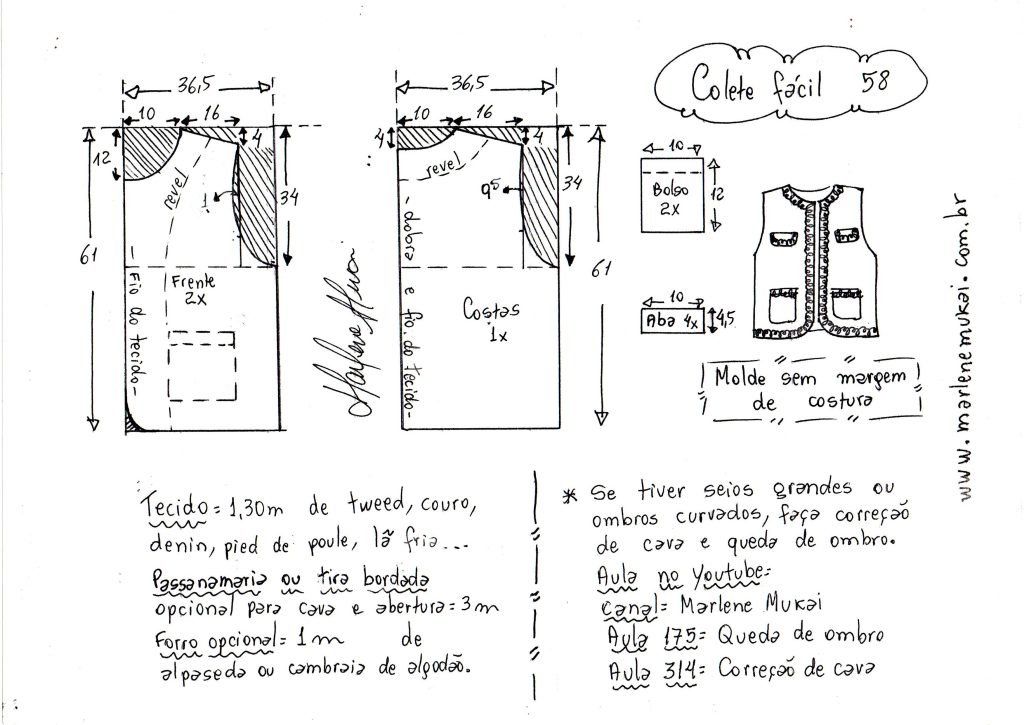 Colete fácil 58
36,5
10 16
4
12
revel
1
34
61
Frente
2x
Fio do tecido
36,5
10 16
4
4
revel
9,5
34
61
dobra e fio do tecido
Costas
1x
10
Bolso
2x
12
10
Aba 4x
4,5
Molde sem margem
de costura
www.marlenemukai.com.br
Tecido = 1,30m de tweed, couro,
denin, pied de poule, lã fria...
Passanamaria ou tira bordada
opcional para cava e abertura = 3m
Forro opcional = 1m de
alpaseda ou cambraia de algodão.
* Se tiver seios grandes ou
ombros curvados, faça correção
de cava e queda de ombro.
Aula no Youtube=
Canal= Marlene Mukai
Aula 175= Queda de ombro
Aula 314= Correção de cava